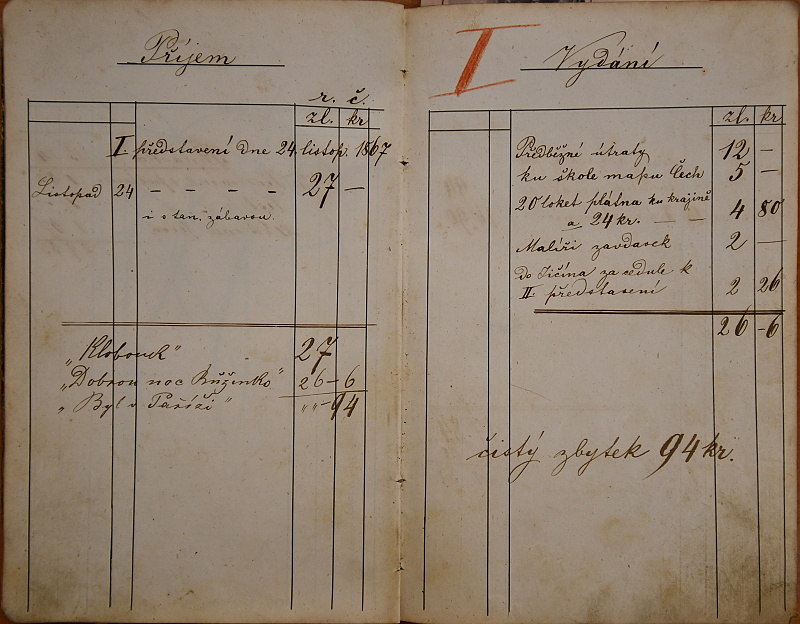 Příjem
r. č.
zl. kr
I. představení dne 24. listop. 1867
Listopad 24 — — — — 27 —
i s tan. zábavou.
„Klobouk" 27
„Dobrou noc Růženko" 26 – 6
„Byl v Paříži" „ „ – 94
I Vydání
zl. kr
Předběžné útraty 12 —
ku škole mapu Čech 5 —
20 loket plátna ku krajině
a 24 kr. — — 4 80
Malíři zavdavek 2 —
do Jičína za cedule k
II. představení 2 26
26 – 6
čistý zbytek 94 kr.